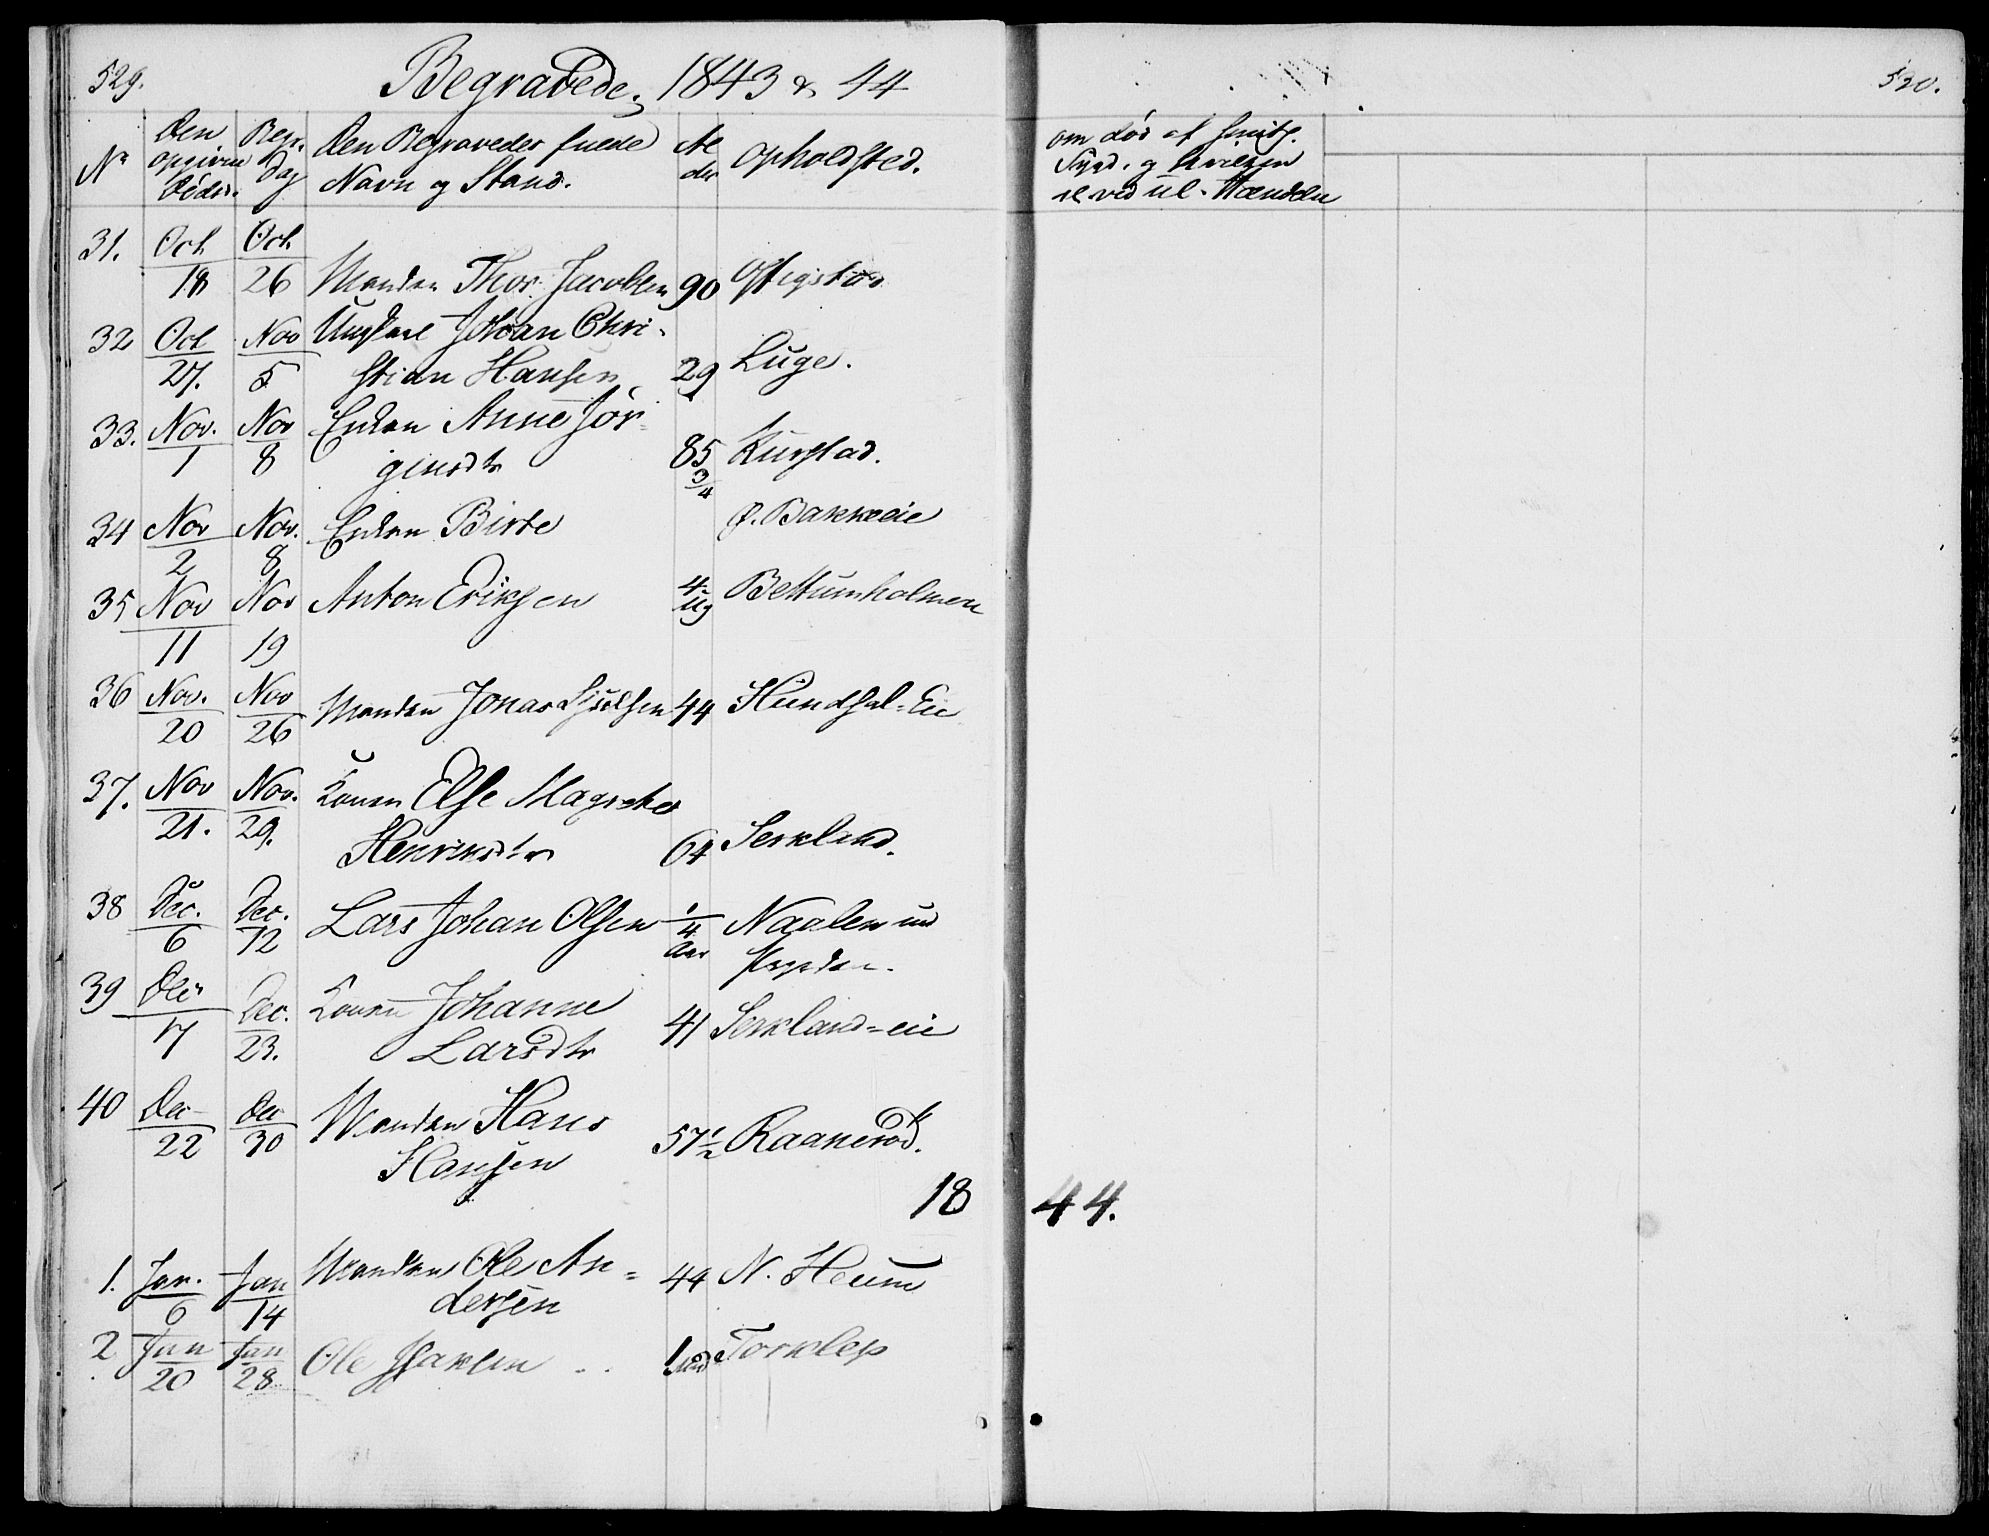 529.
Begravede, 1843 & 44
530.
Nr
Den opgivne Dödsd.
Begr. Dag
Den Begravedes fulde Navn og Stand.
Alder
Opholdsted.
om död af smits. Sygd. og hvilken
el. ved ul. Hændelse
31. Oct 18 Oct 26 Manden Thor Jacobsen 90
32 Oct 27. Nov 5 Ungkarl Johan Chri-
stian Hansen 29 Luge.
33. Nov. 1 Nov 8 Enken Anne Jör-
gensdtr 85 3/4 Rustad.
34 Nov 2 Nov. 8 Enken Birte Ø. Bakkeeie
35 Nov 11 Nov 19 Anton Eriksen 4 Ug Bettumholmen
36 Nov. 20 Nov 26 Manden Jonas 44 Hundsal-Eie
37. Nov 21. Nov. 29. Konen Else
Henriksdtr 64 Serkland.
38 Dec. 6 Dec. 12 Lars Johan Olsen 1/4 Aar Naalen
39 Dec 17 Dec. 23. Konen Johanne
Larsdtr 41 Serkland=eie
40 Dec 22 Dec 30 Manden Hans
Hansen 57 1/2 Raanerød.
1844.
1. Jan. 6 Jan 14 Manden Ole An=
dersen 44 N. Heum
2 Jan 20 Jan 28 Ole Isaksen 1 Torklep